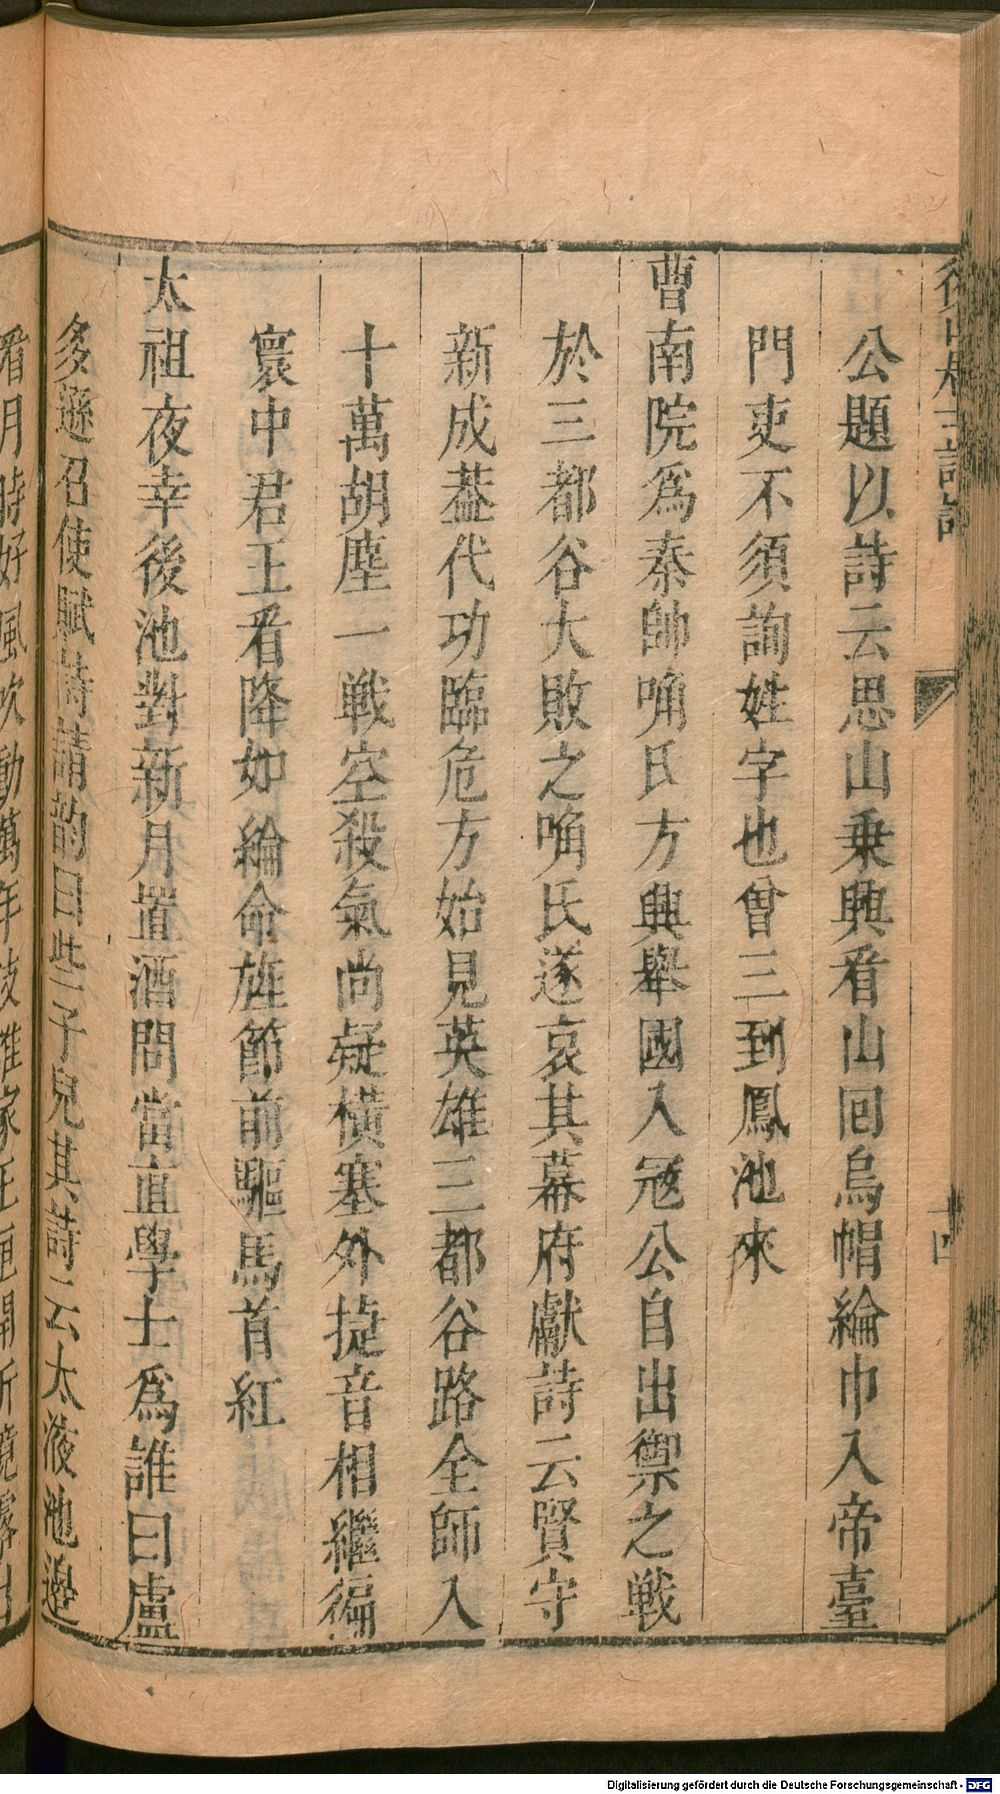 公題以詩云思山乗興看山囘烏帽綸巾入帝臺
門吏不須詢姓字也曾三到鳳池來
曹南院爲秦帥唃氏方興舉國入宼公自出禦之戦
於三都谷大敗之唃氏遂哀其幕府獻詩云賢守
新成葢代功臨危方始見英雄三都谷路全師入
十萬胡塵一戦空殺氣尚疑横塞外捷音相繼徧
寰中君王看降如綸命旌節前驅馬首紅
太祖夜幸後池對新月置酒問當直學士爲誰曰盧
多遜召使賦詩請韵曰些子兒其詩云太液池邉
看月時好風吹動萬年枝誰家玉匣開
Digitalisierung gefördert durch die Deutsche Forschungsgemeinschaft - DFG